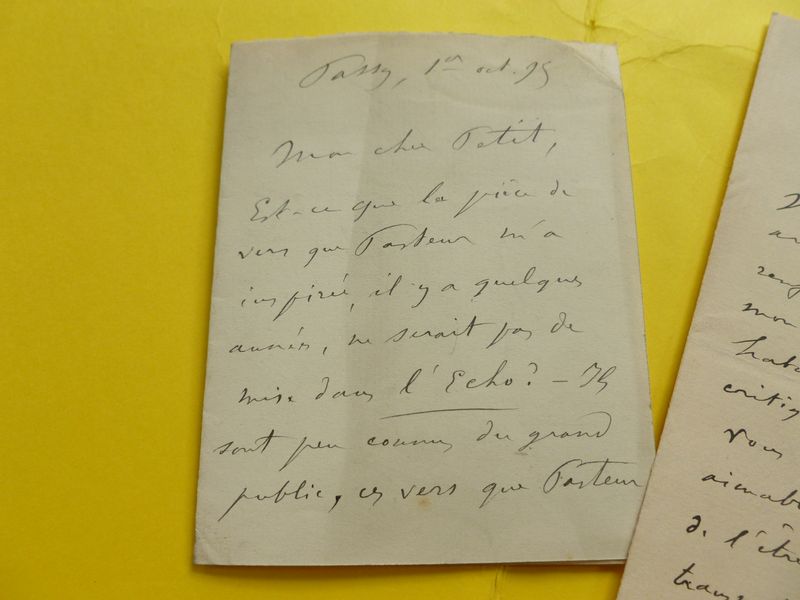 Passy, 1er oct. 95
Mon cher Petit,
Est-ce que la pièce de
vers que Pasteur m'a
inspirée, il y a quelques
années, ne serait pas de
mise dans l'Echo? – Ils
sont peu connus du grand
public, ces vers que Pasteur
mon
critiq
Vous
aimab
de l'être
trans